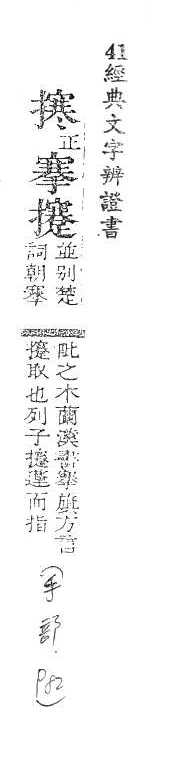 41經典文字辨證書
㩃正搴攓並别楚
詞朝搴
阰之木蘭漢書搴旗方言
攓取也列子攓蓬而指
(手部. P82)